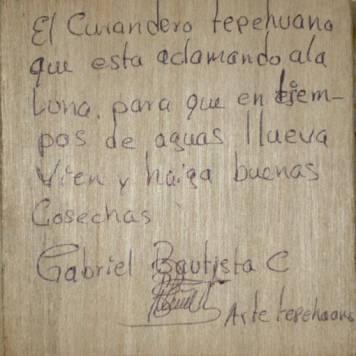 El Curandero tepehuano
que esta aclamando ala
Luna. para que en tiem-
pos de aguas llueva
vien y haiga buenas
Cosechas
Gabriel Bautista C
Arte tepehuano